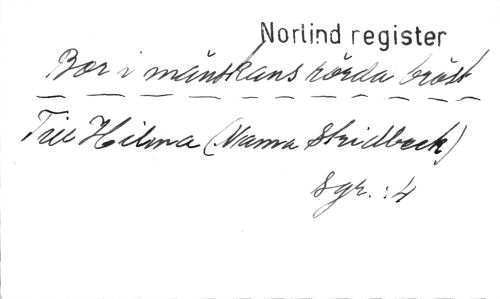 Norlind register
Bor i mänskans rörda bröst
Till Hilma (Mamma Stridbeck)
Sgr. : 4